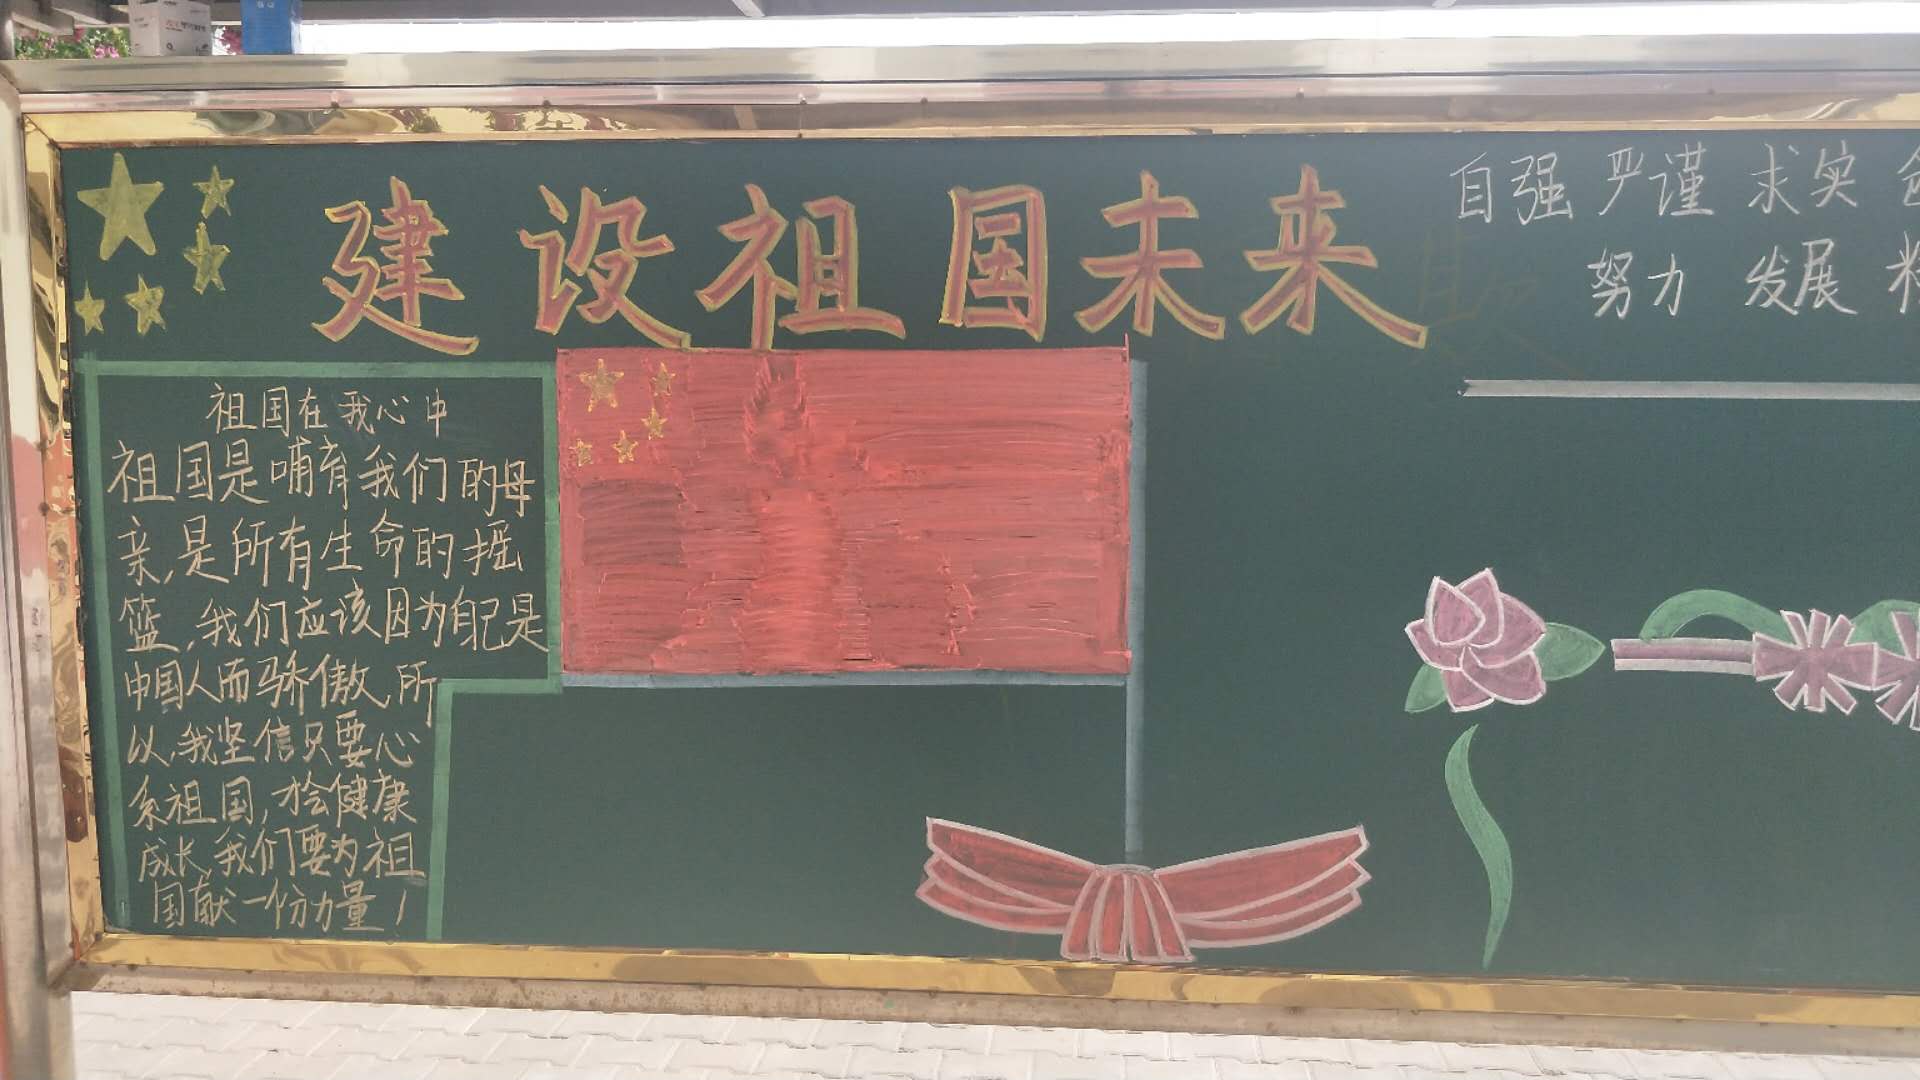 建设祖国未来
自强 严谨 求实
努力 发展
祖国在我心中
祖国是哺育我们的母
亲,是所有生命的摇
篮,我们应该因为自己是
中国人而骄傲,所
以,我坚信只要心
系祖国,才会健康
成长,我们要为祖
国献一份力量!